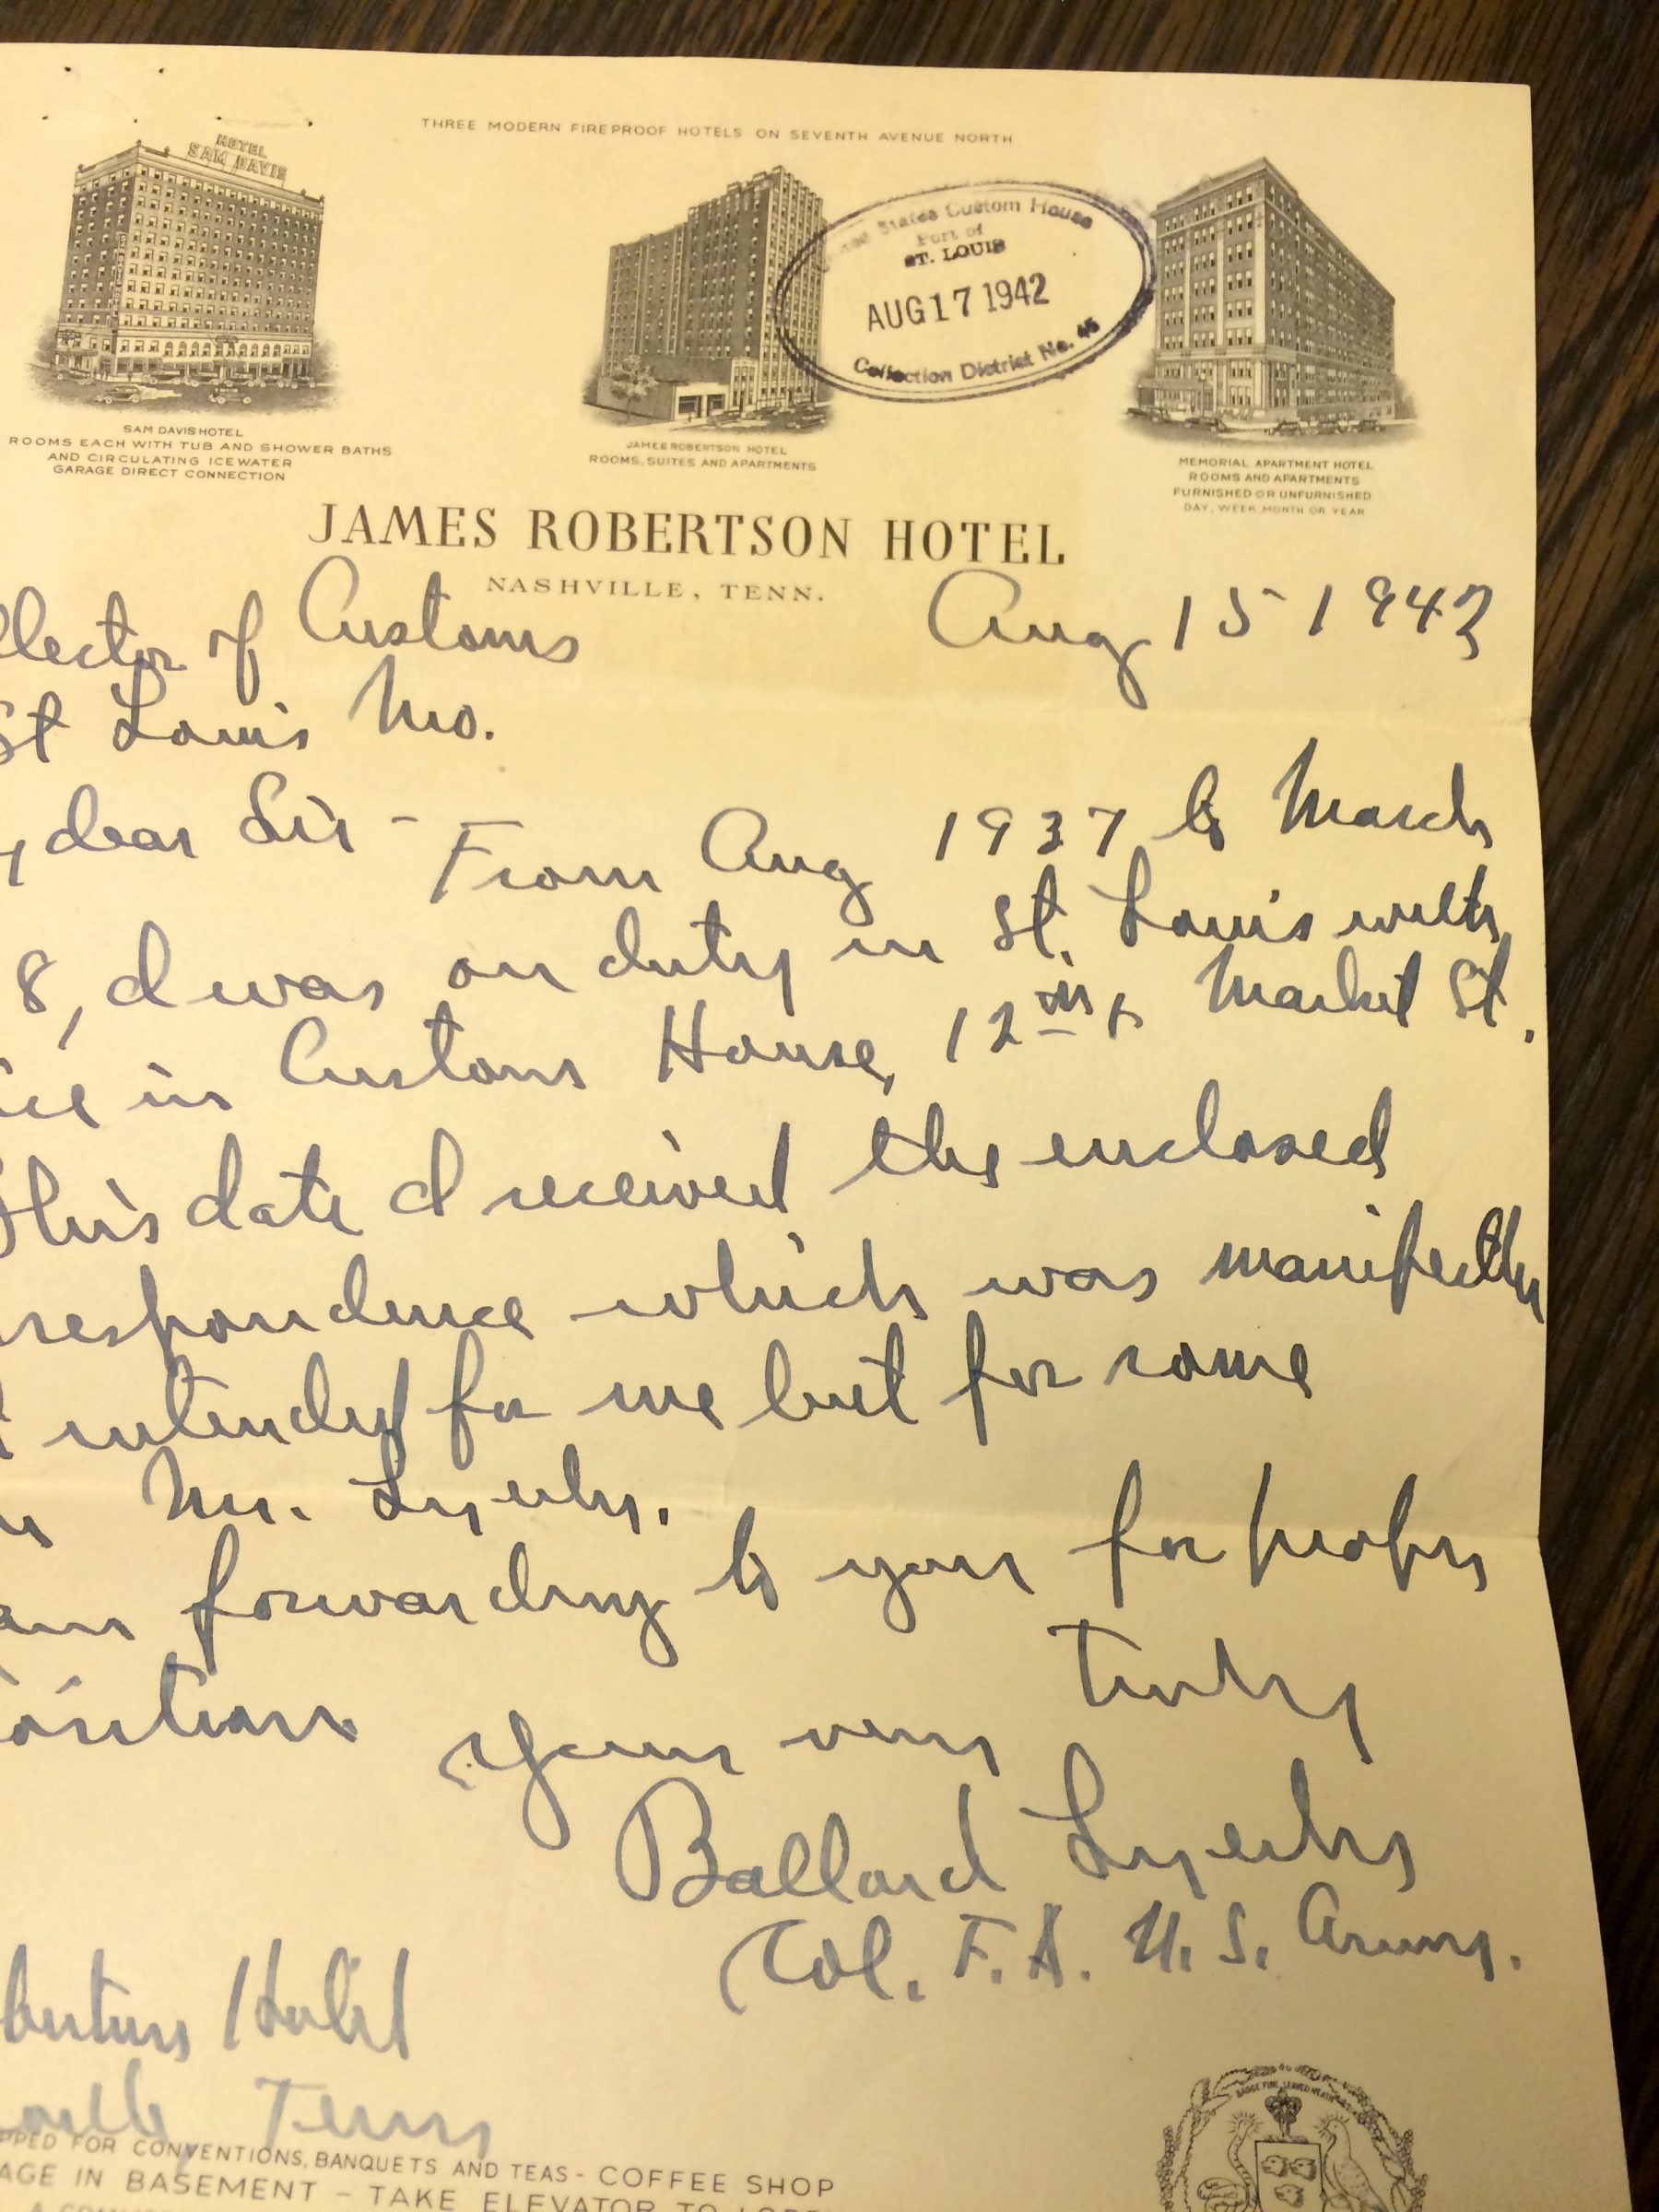 THREE MODERN FIREPROOF HOTELS ON SEVENTH AVENUE NORTH
HOTEL
SAM DAVIS
SAM DAVIS HOTEL
ROOMS EACH WITH TUB AND SHOWER BATHS
AND CIRCULATING ICE WATER
GARAGE DIRECT CONNECTION
JAMES ROBERTSON HOTEL
ROOMS, SUITES AND APARTMENTS
ted States Custom House
Port of
ST. LOUIS
AUG 17 1942
Collection District No. 45
MEMORIAL APARTMENT HOTEL
ROOMS AND APARTMENTS
FURNISHED OR UNFURNISHED
DAY, WEEK, MONTH OR YEAR
JAMES ROBERTSON HOTEL
NASHVILLE, TENN.
llector of Customs Aug 15 1942
St Louis Mo.
y dear Sir - From Aug 1937 to March
8, I was on duty in St. Louis with
ice in Customs House, 12th & Market St.
This date I received the enclosed
rrespondence which was manifestly
t intended for me but for some
Mr. Lyerly.
am forwarding to you for proper
position.
Yours very truly
Ballard Lyerly
Col. F.A. U.S. Army.
bertson Hotel
ville Tenn
PPED FOR CONVENTIONS, BANQUETS AND TEAS - COFFEE SHOP
AGE IN BASEMENT - TAKE ELEVATOR TO LOBB